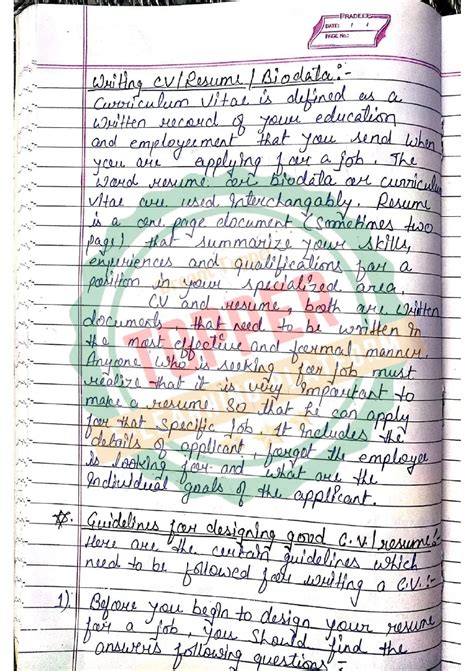 PRADEEP
DATE: / /
PAGE NO.:
Writing CV/Resume/Biodata:-
Curriculum Vitae is defined as a
written record of your education
and employeement that you send when
you are applying for a job. The
word resume or Biodata or curriculum
Vitae are used Interchangably. Resume
is a one page document (Sometimes two
page) that summarize your skills,
experiences and qualifications for a
position in your specialized area.
CV and resume, both are written
documents, that need to be written In
the most effective and formal manner.
Anyone who is seeking for job must
realize that it is very important to
make a resume. So that he can apply
for that specific job. It Includes the
details of applicant, forgot the employee
is looking for and what are the
Individual goals of the applicant.
Guidelines for designing good C.V/resume:-
Here are the certain guidelines which
need to be followed for writing a C.V.:-
1) Before you begin to design your resume
for a job, you should find the
answers following questions:-
TOPPER